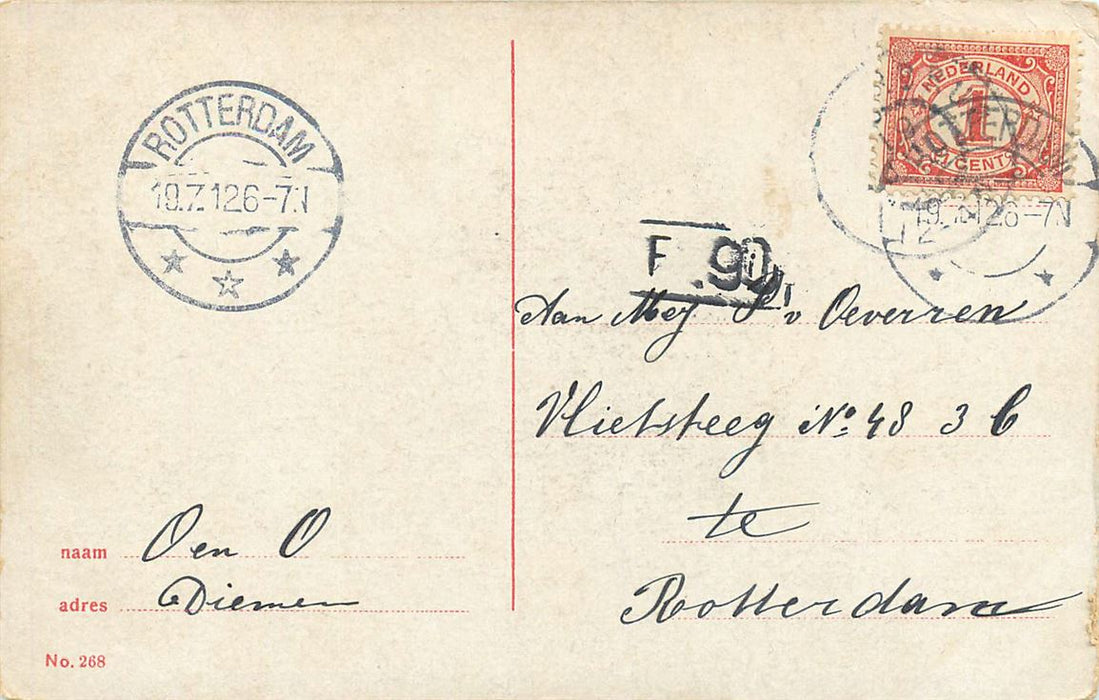 ROTTERDAM
19.7.12 6-7N
NEDERLAND
1
1 CENT
ROTTERDAM
19.7.12 6-7N
Aan Mej P v Oeverren
Vlietsteeg No 48 3 C
te
Rotterdam
naam O en O
adres Diemen
No. 268